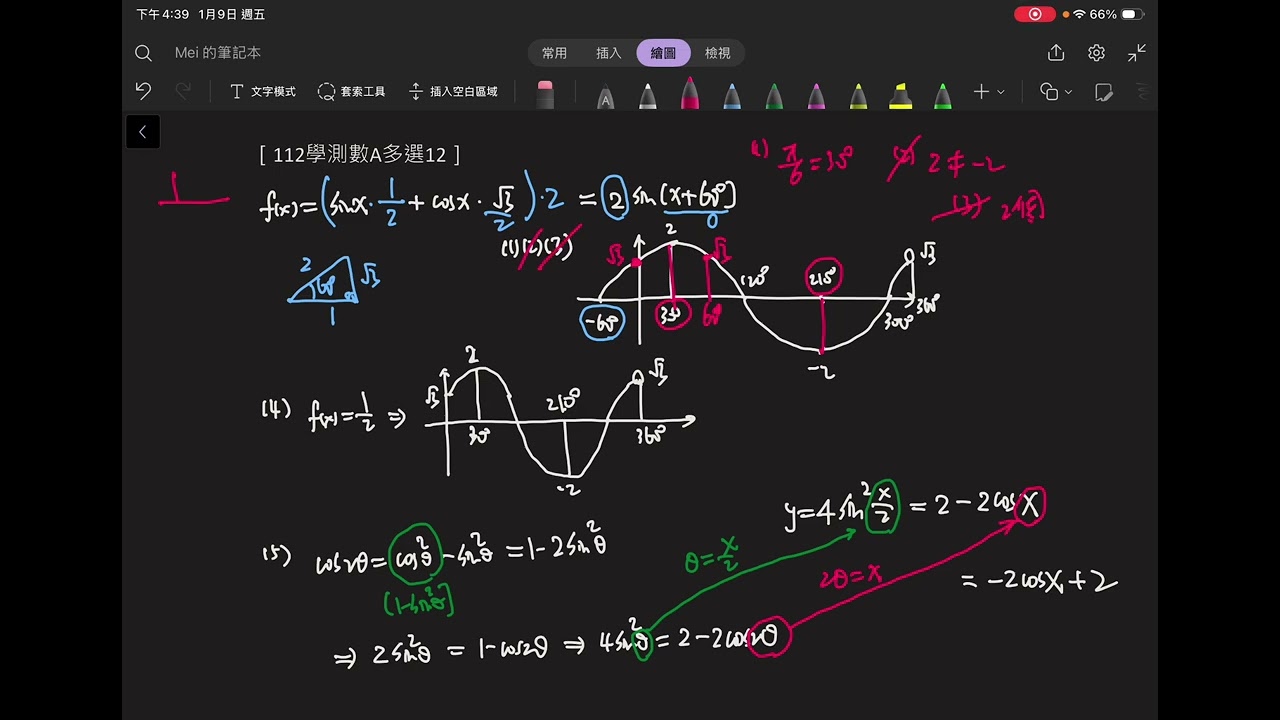 下午4:39 1月9日 週五 66%
Mei 的筆記本 常用 插入 繪圖 檢視
T 文字模式 套索工具 插入空白區域 A
[ 112學測數A多選12 ]
(1) π/6=30° (2) 2≠-2
(3)
f(x)=(sinx·1/2+cosx·√3/2)·2 = 2 sin(x+60°)
0
(1)(2)(3)
2 60° √3 1
√3 2 √3 120° 210° √3
-60° 30° 60° 300° 360°
-2
(4) f(x)=1/2 ⇒
√3 2 210° √3
30° 360°
-2
y=4sin²x/2=2-2cosx
(5) cos2θ=cos²θ-sin²θ=1-2sin²θ
(1-sin²θ)
θ=x/2
2θ=x
=-2cosx+2
⇒ 2sin²θ = 1-cos2θ ⇒ 4sin²θ=2-2cos2θ